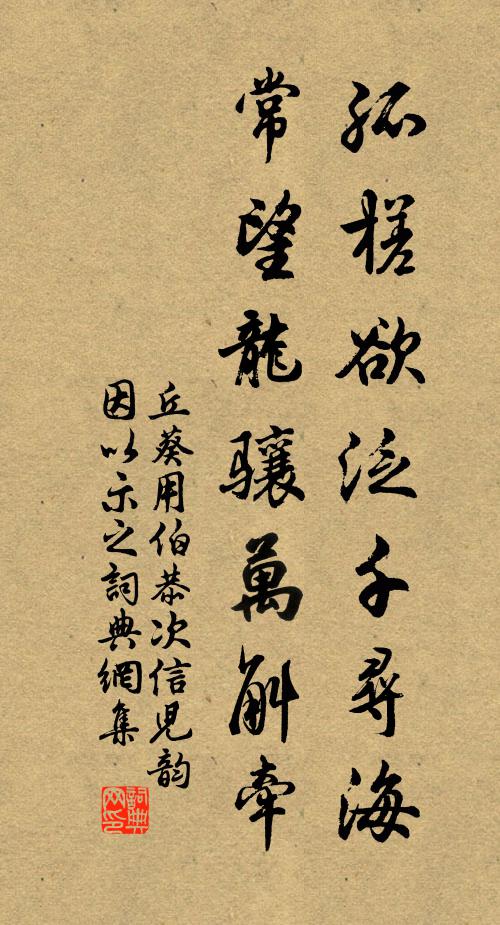 孤槎欲泛千尋海
常望龍驤萬斛牽
丘葵用伯恭次信児韵
因以示之詞典網集
詞典網印